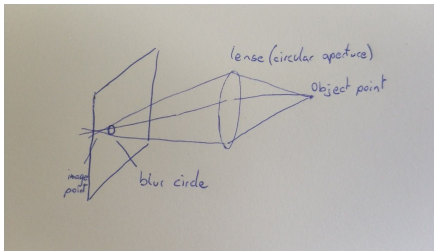 lense (circular aperture)
Object point
image
point
blur circle